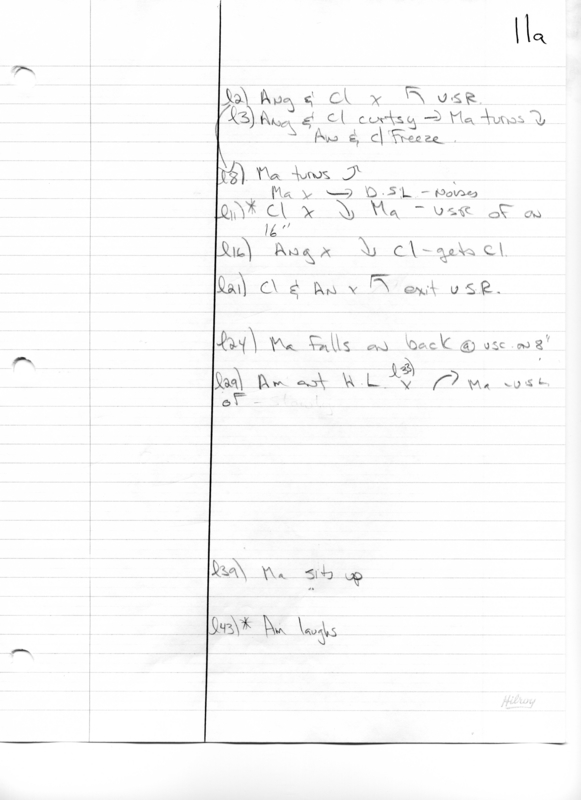 11a
l2) Ang & Cl x ↖ U.S.R.
l3) Ang & Cl curtsy → Ma turns ↓
An & Cl Freeze.
l8) Ma turns ↗
Ma x → D.S.L - Noises
l11)* Cl x ↓ Ma - USR OF on
16"
l16) Ang x ↓ Cl - gets Cl.
l21) Cl & An x ↖ exit U.S.R.
l24) Ma Falls on back @ USC on 8"
l29) Am ent H.L. l33) x ↗ Ma - USL
OF
l39) Ma sits up
l43)* Am laughs
Hilroy